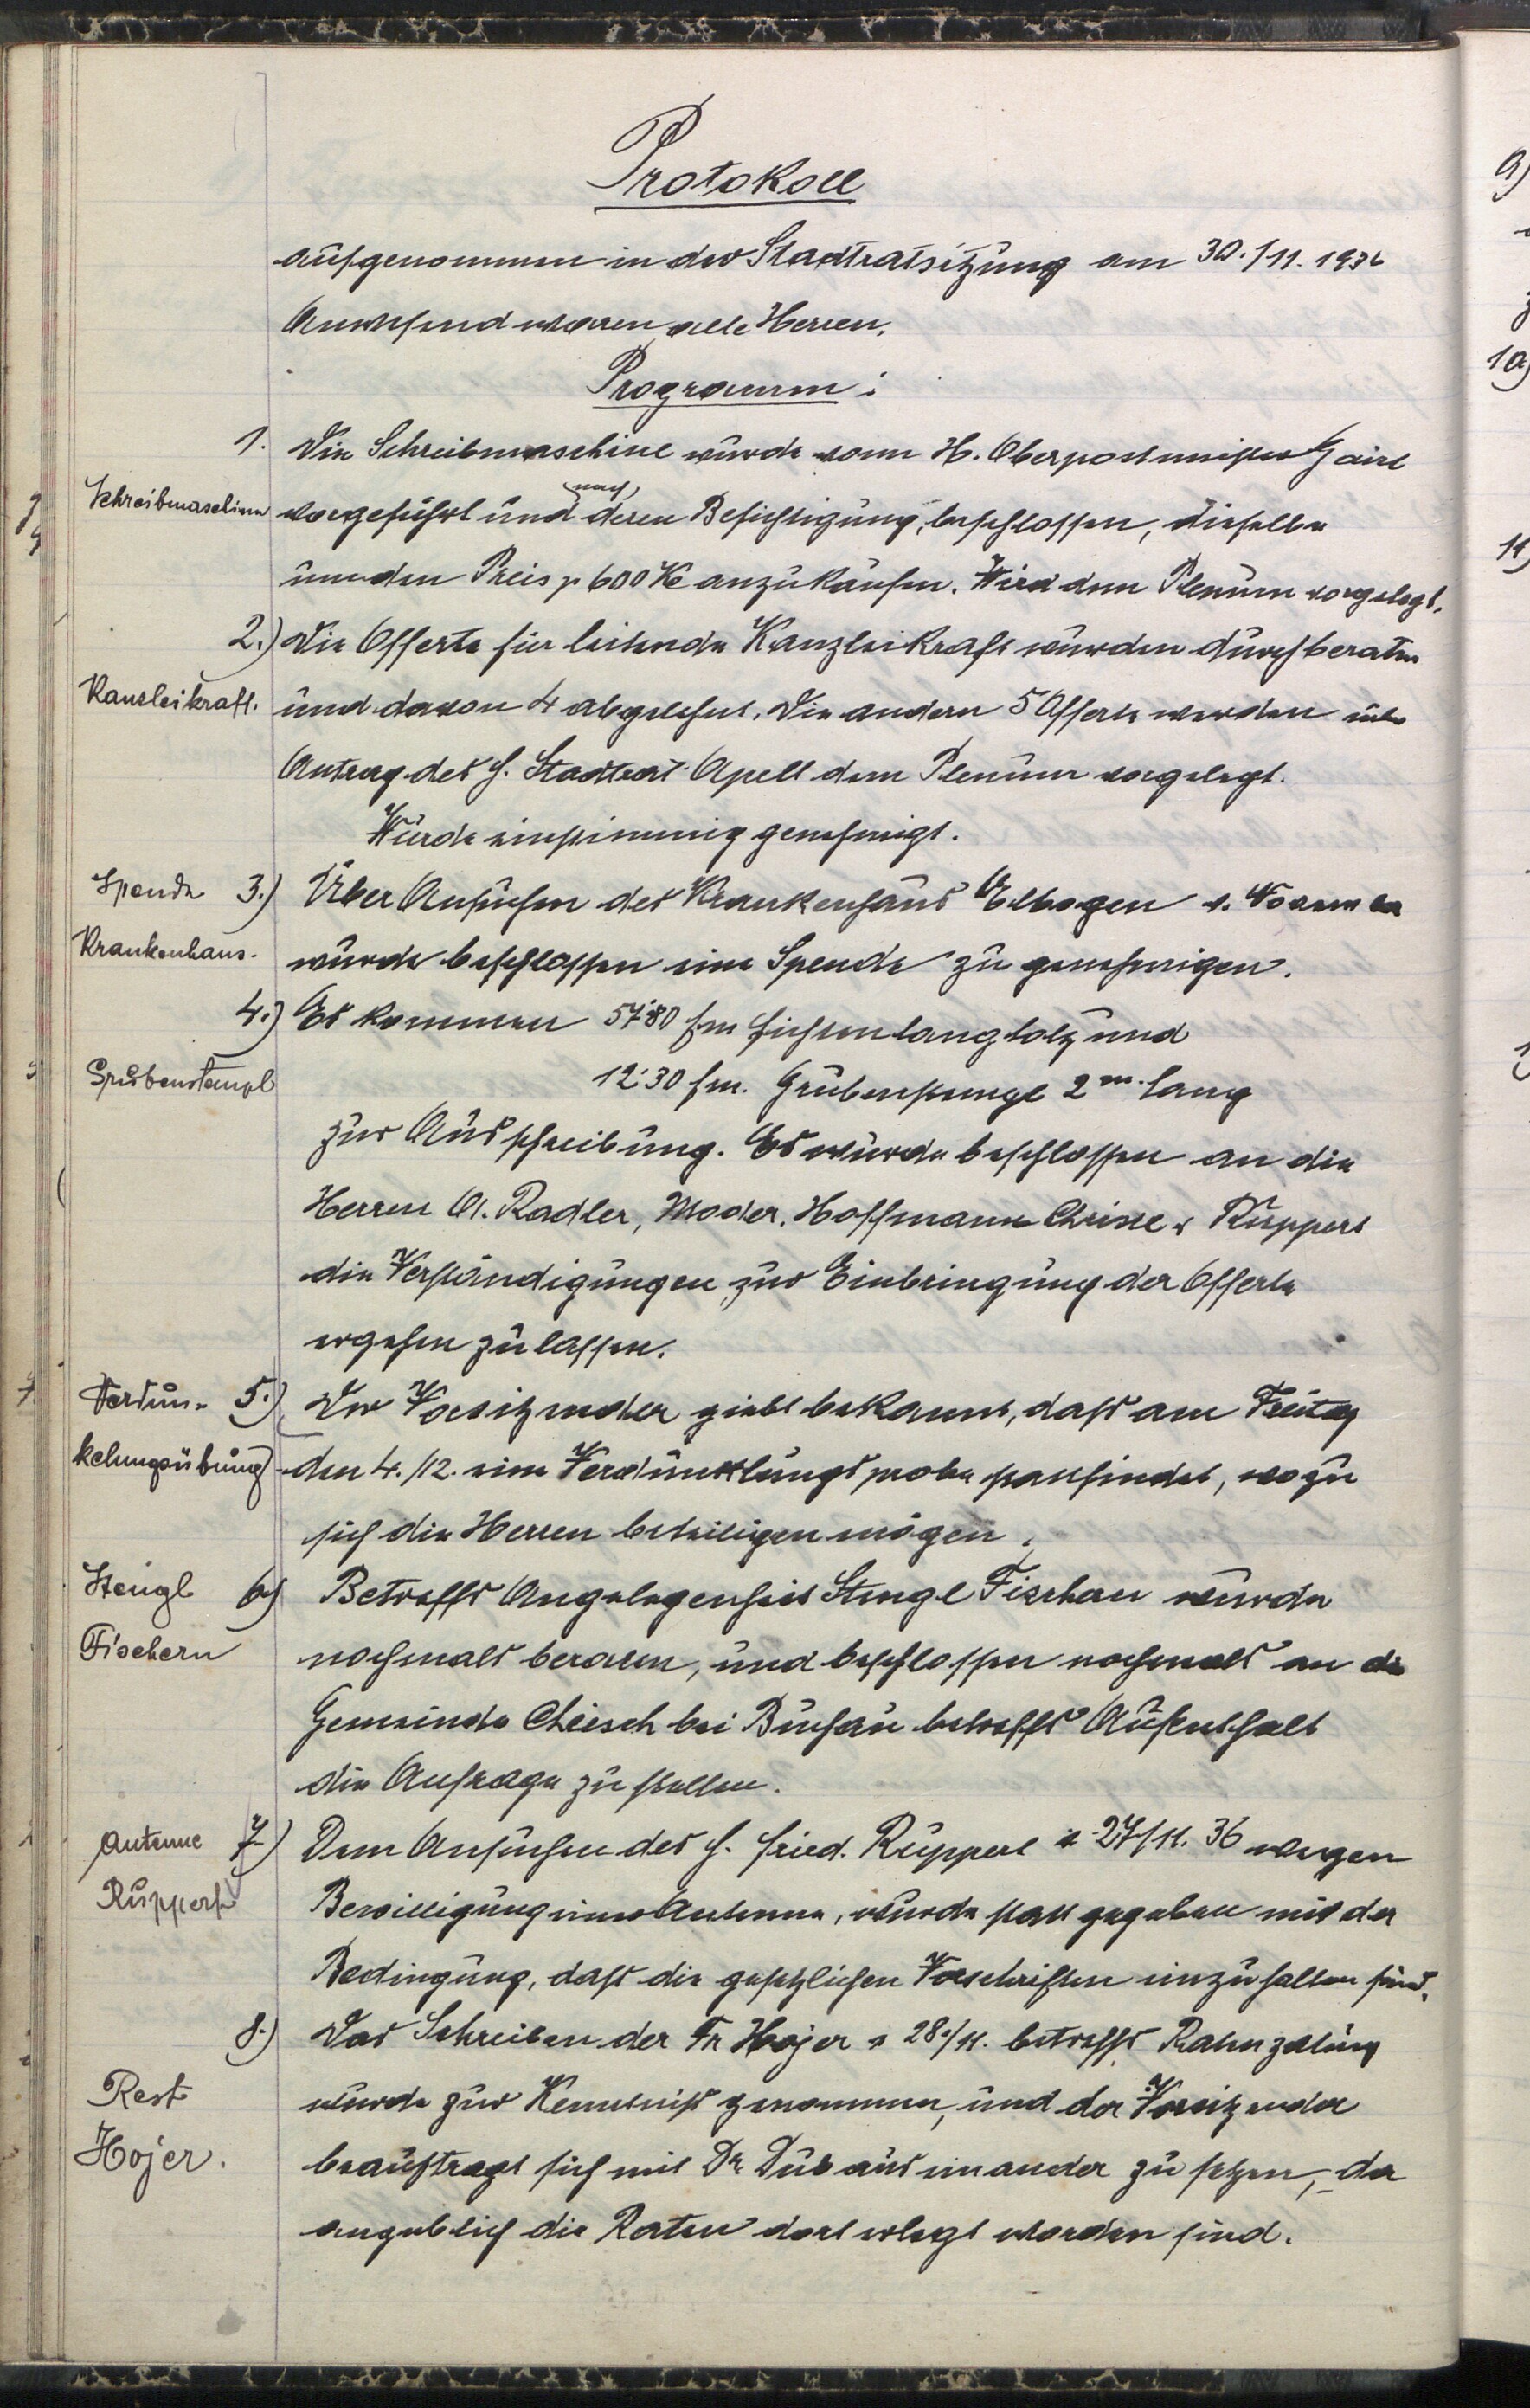 Protokoll
aufgenommen in der Stadtratsitzung am 30./11. 1936
Anwesend waren alle Herren.
Programm:
1. Die Schreibmaschine wurde vom H. Oberpostmeister
Schreibmaschine vorgeführt und nach deren Besichtigung, beschlossen, dieselbe
um den Preis p 600 Kč anzukaufen. Wird dem Plenum vorgelegt.
2.) Die Offerte für leitende Kanzleikraft wurden durchberaten
Kanzleikraft. und davon 4 abgelehnt. Die andern 5 Offerte werden über
Antrag des H. Stadtrat Apell dem Plenum vorgelegt.
Wurde einstimmig genehmigt.
Spende 3.) Über Ansuchen des Krankenhaus Elbogen
Krankenhaus. wurde beschlossen eine Spende zu genehmigen.
4.) Es kommen 57·80 fm Fichtenlangholz und
Grubenstempl 12·30 fm. Grubenstempl 2 m. lang
zur Ausschreibung. Es wurde beschlossen an die
Herren A. Radler, Moder, Hoffmann Christl u Ruppert
die Verständigungen zur Einbringung der Offerte
ergehen zu lassen.
Verdun- 5.) Der Vorsitzender giebt bekannt, dass am Freitag
kelungsübung den 4./12. eine Verdunklungsprobe stattfindet, wozu
sich die Herren beteiligen mögen.
Stengl 6.) Betreffs Angelegenheit Stengl Fischern wurde
Fischern nochmals beraten, und beschlossen nochmals an die
Gemeinde Chiesch bei Buchau betreffs Aufenthalt
die Anfrage zu stellen.
Antenne 7.) Dem Ansuchen des H. Fried. Ruppert v. 27/11. 36 wegen
Ruppert Bewilligung einer Antenne, wurde statt gegeben mit der
Bedingung, dass die gesetzlichen Vorschriften einzuhalten sind.
8.) Das Schreiben der Fr Hojer v 28./11. betreffs Ratenzalung
Rest wurde zur Kenntniss genommen, und der Vorsitzender
Hojer. beauftragt sich mit Dr. Dub auseinander zu setzen, da
angeblich die Raten dort erlegt worden sind.